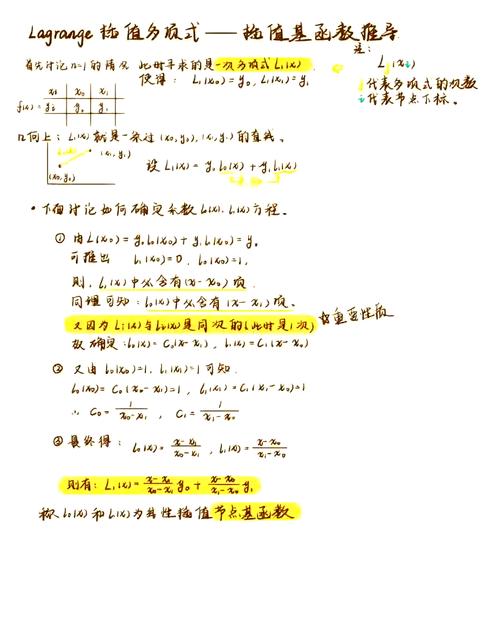 Lagrange 插值多项式 —— 插值基函数推导
注:
首先讨论n=1的情况 此时寻求的是一次多项式L₁(x)
使得: L₁(x₀)=y₀, L₁(x₁)=y₁
L j (xi)
j代表多项式的次数
i代表节点下标。
xi x₀ x₁
f(x)=yi y₀ y₁
几何上: L₁(x)就是一条过(x₀,y₀),(x₁,y₁)的直线。
(x₁,y₁)
(x₀,y₀)
设 L₁(x)=y₀l₀(x)+y₁l₁(x)
• 下面讨论如何确定系数l₀(x).l₁(x)方程。
① 由L₁(x₀)=y₀l₀(x₀)+y₁l₁(x₀)=y₀
可推出 l₁(x₀)=0, l₀(x₀)=1,
则, l₁(x)中必含有(x-x₀)项
同理可知: l₀(x)中必含有(x-x₁)项。
又因为L₁(x)与l₀(x)是同次的(此时是1次)
☆重要性质
故确定: l₀(x)=C₀(x-x₁), l₁(x)=C₁(x-x₀)
② 又由 l₀(x₀)=1. l₁(x₁)=1可知.
l₀(x₀)=C₀(x₀-x₁)=1, l₁(x₁)=C₁(x₁-x₀)=1
∴ C₀=1/(x₀-x₁), C₁=1/(x₁-x₀)
③ 最终得: l₀(x)=(x-x₁)/(x₀-x₁), l₁(x)=(x-x₀)/(x₁-x₀)
则有: L₁(x)=(x-x₁)/(x₀-x₁) y₀+(x-x₀)/(x₁-x₀) y₁
称 l₀(x)和l₁(x)为线性插值节点基函数